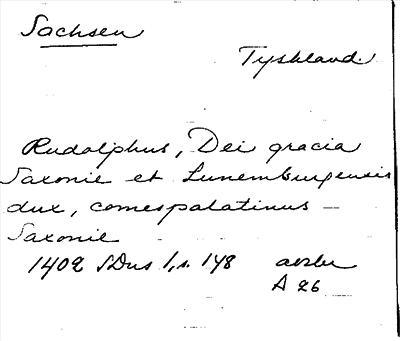 Sachsen
Tyskland.
Rudolphus, Dei gracia
Saxonie et Lunemburgensis
dux, comespalatinus –
Saxonie
1402 SDns 1, s. 148
A 26